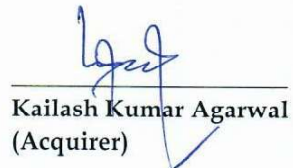 Kailash Kumar Agarwal
(Acquirer)